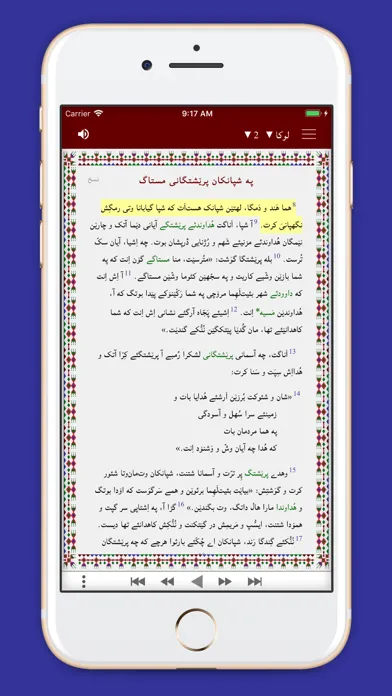 Carrier 9:17 AM
لوکا ▼ 2 ▼
په شپانکان پرێشتگانی مستاگ
نسخ
8 هما هَند و دَمگا، لهتێن شپانک هستاَت که شپا گیابانا وتی رمگِش
نگهپانیَ کرت. 9 آ شپا، اَناگت هُداوندئے پرێشتگے آیانی دێما آتک و چارێن
نێمگان هُداوندئے مزنیئے شَهم و رُژنایی درپشان بوت. چه اِشیا، آیان سکّ
تُرست. 10 بله پرێشتگا گوَشت: «مترسێت، منا مستاگے گوَن اِنت که په
شما بازێن وشّیے کاریت و په سجّهێن کئوما وشّێن مستاگے. 11 آ اِش اِنت
که داوودئے شهر بئیت‌لَهما مروچی په شما رَکّێنۆکے پێدا بوتگ که آ،
هُداوندێن مَسیه* اِنت. 12 اِشیئے پَجّاه آرگئے نشانی اِش اِنت که شما
کاهدانێئے تها، مان گُدێا پێتکگێن نُنُّکے گندێت.»
13 اَناگت، چه آسمانی پرێشتگانی لشکرا رُمبے آ پرێشتگئے کِرّا آتک و
هُدااِش سِپَت و سَنا کرت:
14 «شان و شئوکت بُرزێن اَرشئے هُدایا بات و
زمینئے سرا سُهل و آسودگی
په هما مردمان بات
که هُدا چه آیان وشّ و وَشنود اِنت.»
15 وهدے پرێشتگ پِر ترّت و آسمانا شتنت، شپانکان وت‌مان‌وتا شئور
کرت و گوَشتِش: «بیاێت بئیت‌لَهما برئوێن و همے سَرگوَست که اوَدا بوتگ
و هُداوندا مارا هال داتگ، وت بگندێنی.» 16 گڑا آ، په اِشتاپی سر گپت و
همۆدا شتنت، ایسُّپ و مَریمِش در گێتکنت و نُنُّکِش کاهدانئے تها دیست.
17 نُنُّکئے گِندگا رَند، شپانکان اے چُکّئے بارئوا هرچے که چه پرێشتگان